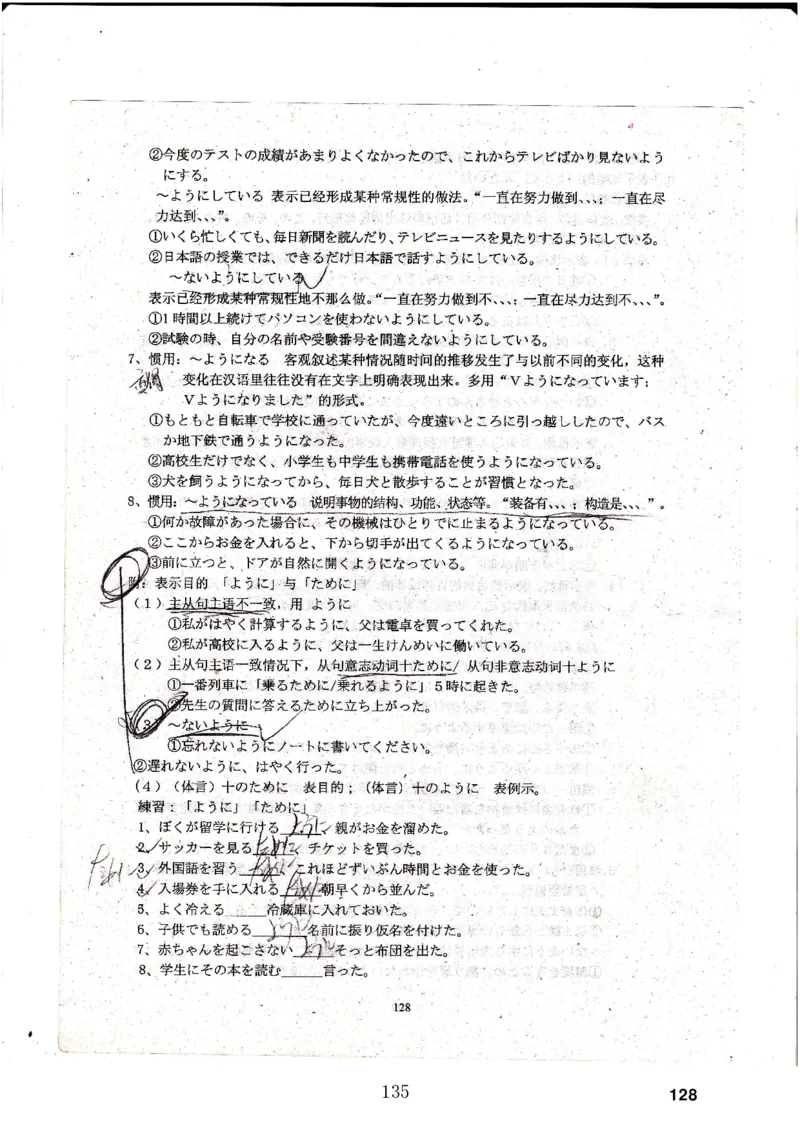 ②今度のテストの成績があまりよくなかったので、これからテレビばかり見ないよう
にする。
～ようにしている 表示已经形成某种常规性的做法。“一直在努力做到、、、；一直在尽
力达到、、、”。
①いくら忙しくても、毎日新聞を読んだり、テレビニュースを見たりするようにしている。
②日本語の授業では、できるだけ日本語で話すようにしている。
～ないようにしている
表示已经形成某种常规性地不那么做。“一直在努力做到不、、、；一直在尽力达到不、、、”。
①1時間以上続けてパソコンを使わないようにしている。
②試験の時、自分の名前や受験番号を間違えないようにしている。
7、惯用：～ようになる 客观叙述某种情况随时间的推移发生了与以前不同的变化，这种
变化在汉语里往往没有在文字上明确表现出来。多用“Ｖようになっています；
Ｖようになりました”的形式。
①もともと自転車で学校に通っていたが、今度遠いところに引っ越ししたので、バス
か地下鉄で通うようになった。
②高校生だけでなく、小学生も中学生も携帯電話を使うようになっている。
③犬を飼うようになってから、毎日犬と散歩することが習慣となった。
8、惯用：～ようになっている 说明事物的结构、功能、状态等。“装备有、、、；构造是、、、”。
①何か故障があった場合に、その機械はひとりでに止まるようになっている。
②ここからお金を入れると、下から切手が出てくるようになっている。
③前に立つと、ドアが自然に開くようになっている。
附：表示目的 「ように」与「ために」
（1）主从句主语不一致，用 ように
①私がはやく計算するように、父は電卓を買ってくれた。
②私が高校に入るように、父は一生けんめいに働いている。
（2）主从句主语一致情况下，从句意志动词十ために/ 从句非意志动词十ように
①一番列車に「乗るために/乗れるように」５時に起きた。
②先生の質問に答えるために立ち上がった。
（3）～ないように
①忘れないようにノートに書いてください。
②遅れないように、はやく行った。
（4）（体言）十のために 表目的；（体言）十のように 表例示。
練習：「ように」「ために」
1、ぼくが留学に行ける ように、親がお金を溜めた。
2、サッカーを見る ために、チケットを買った。
3、外国語を習う ために、これほどずいぶん時間とお金を使った。
4、入場券を手に入れる ために 朝早くから並んだ。
5、よく冷える＿＿＿冷蔵庫に入れておいた。
6、子供でも読める ように 名前に振り仮名を付けた。
7、赤ちゃんを起こさない ように そっと布団を出た。
8、学生にその本を読む＿＿＿言った。
128
135
128